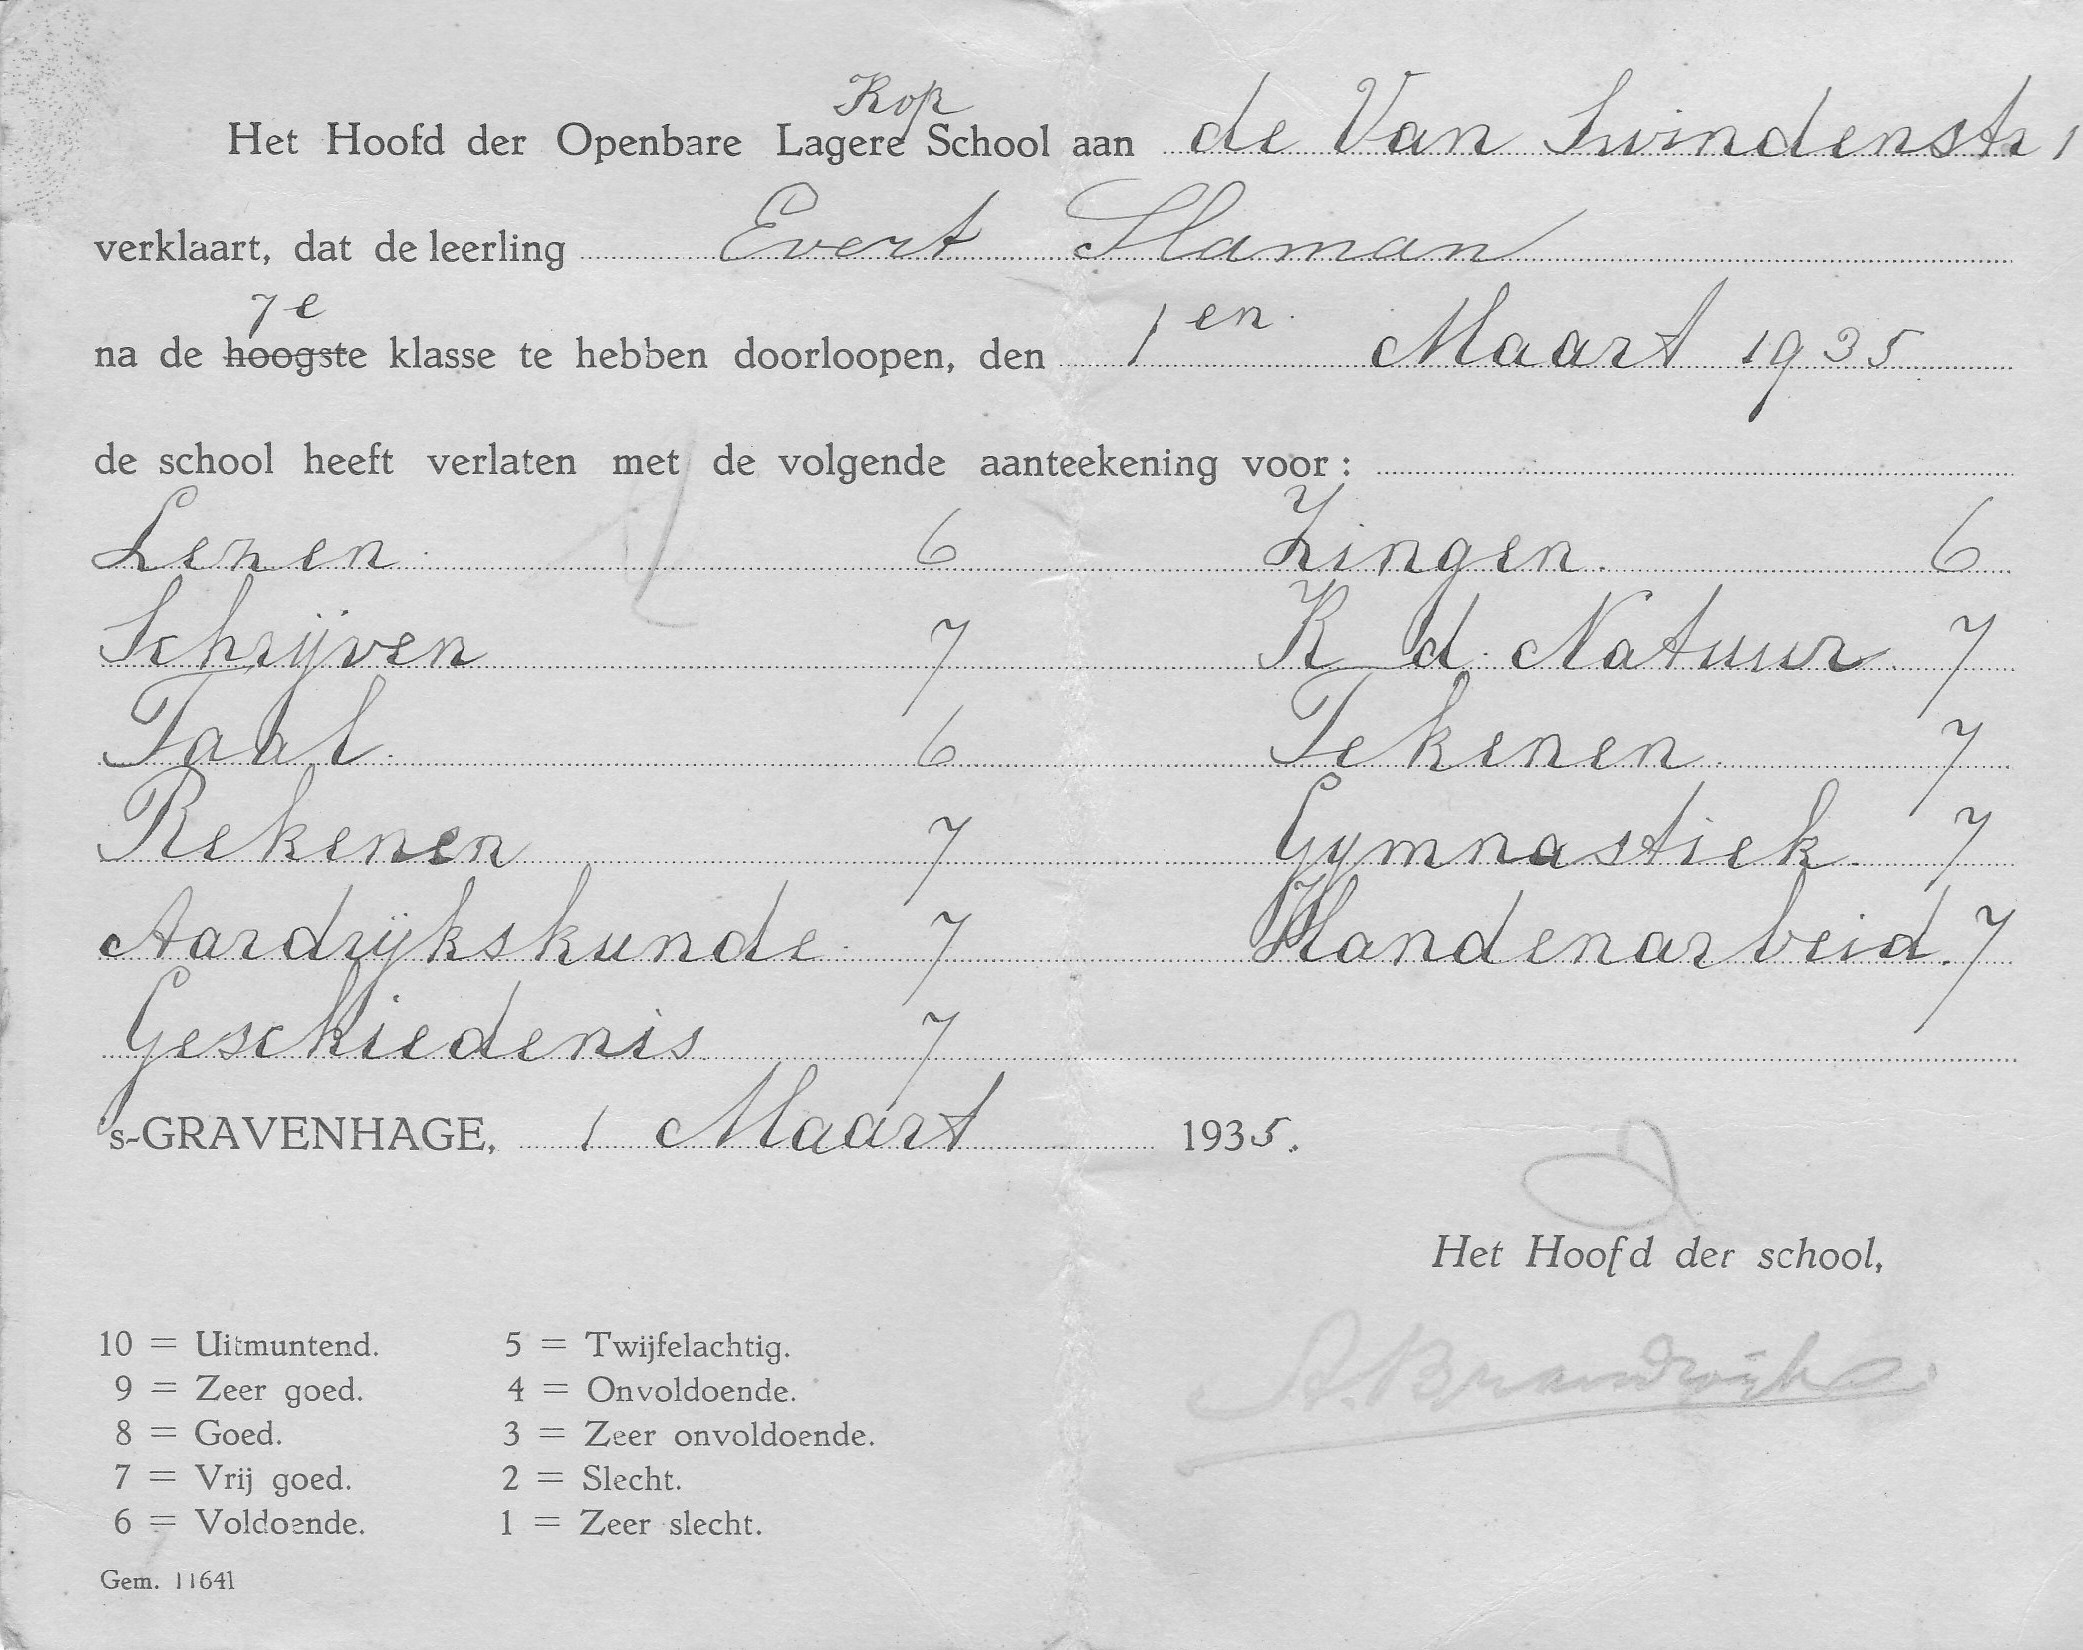 Kop
Het Hoofd der Openbare Lagere School aan de Van Swindenstr 1
verklaart, dat de leerling Evert Slaman
7e
na de hoogste klasse te hebben doorloopen, den 1en. Maart 1935
de school heeft verlaten met de volgende aanteekening voor:
Lezen. 6 Zingen. 6
Schrijven 7 K d. Natuur. 7
Taal. 6 Tekenen. 7
Rekenen 7 Gymnastiek. 7
Aardrijkskunde. 7 Handenarbeid. 7
Geschiedenis 7
's-GRAVENHAGE, 1 Maart 1935.
Het Hoofd der school,
10 = Uitmuntend. 5 = Twijfelachtig.
9 = Zeer goed. 4 = Onvoldoende.
8 = Goed. 3 = Zeer onvoldoende.
7 = Vrij goed. 2 = Slecht.
6 = Voldoende. 1 = Zeer slecht.
Gem. 11641